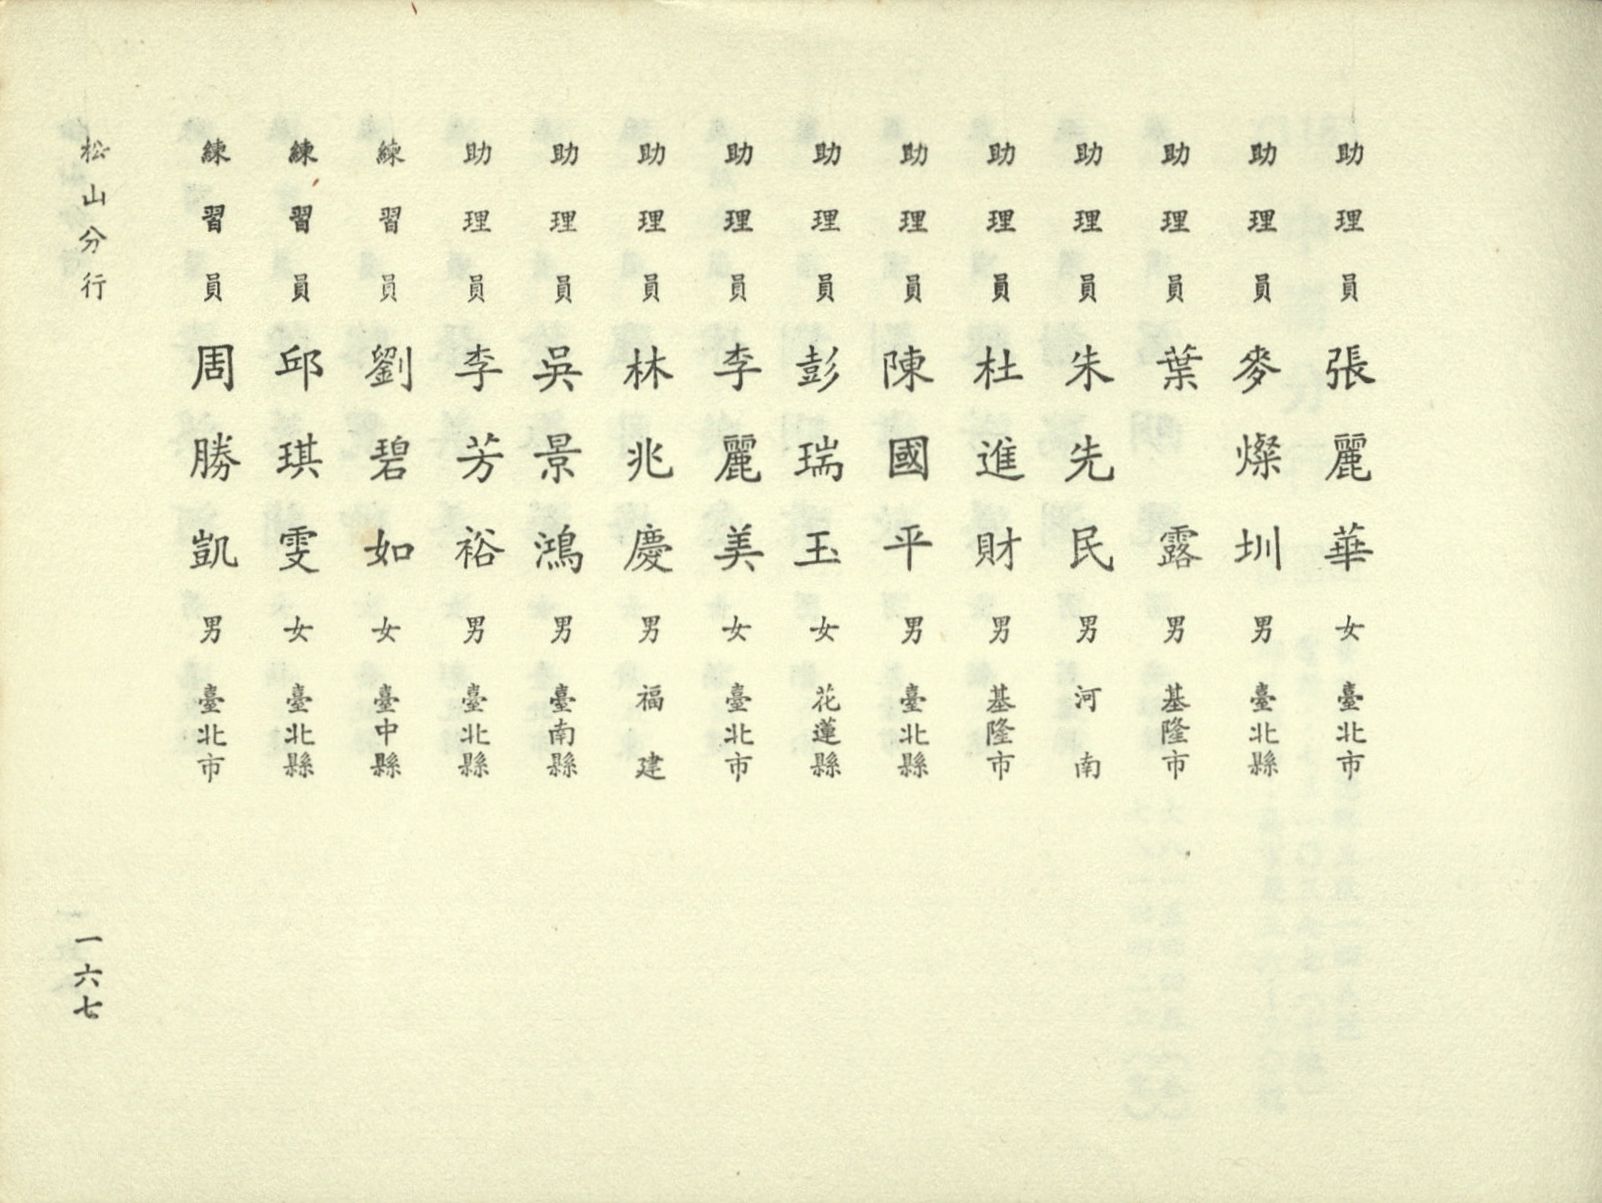 助理員 張麗華 女 臺北市
助理員 麥燦圳 男 臺北縣
助理員 葉露 男 基隆市
助理員 朱先民 男 河南
助理員 杜進財 男 基隆市
助理員 陳國平 男 臺北縣
助理員 彭瑞玉 女 花蓮縣
助理員 李麗美 女 臺北市
助理員 林兆慶 男 福建
助理員 吳景鴻 男 臺南縣
助理員 李芳裕 男 臺北縣
練習員 劉碧如 女 臺中縣
練習員 邱琪雯 女 臺北縣
練習員 周勝凱 男 臺北市
松山分行 一六七